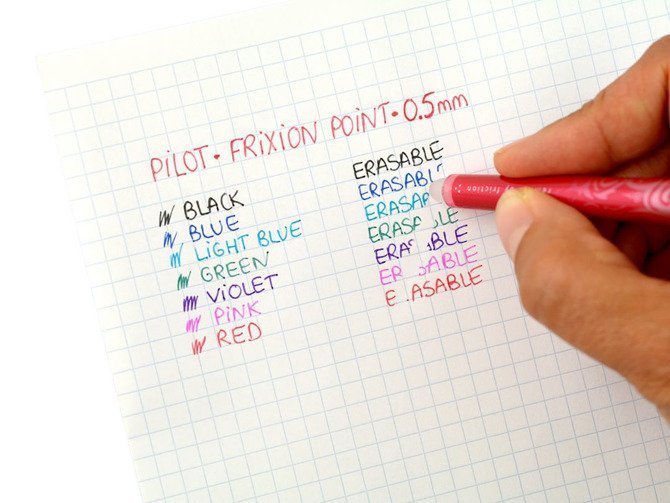 PILOT · FRIXION POINT · 0.5mm
BLACK
BLUE
LIGHT BLUE
GREEN
VIOLET
PINK
RED
ERASABLE
ERASABL
ERASA
ERASA LE
ERA BLE
ER ABLE
E ASABLE
friction